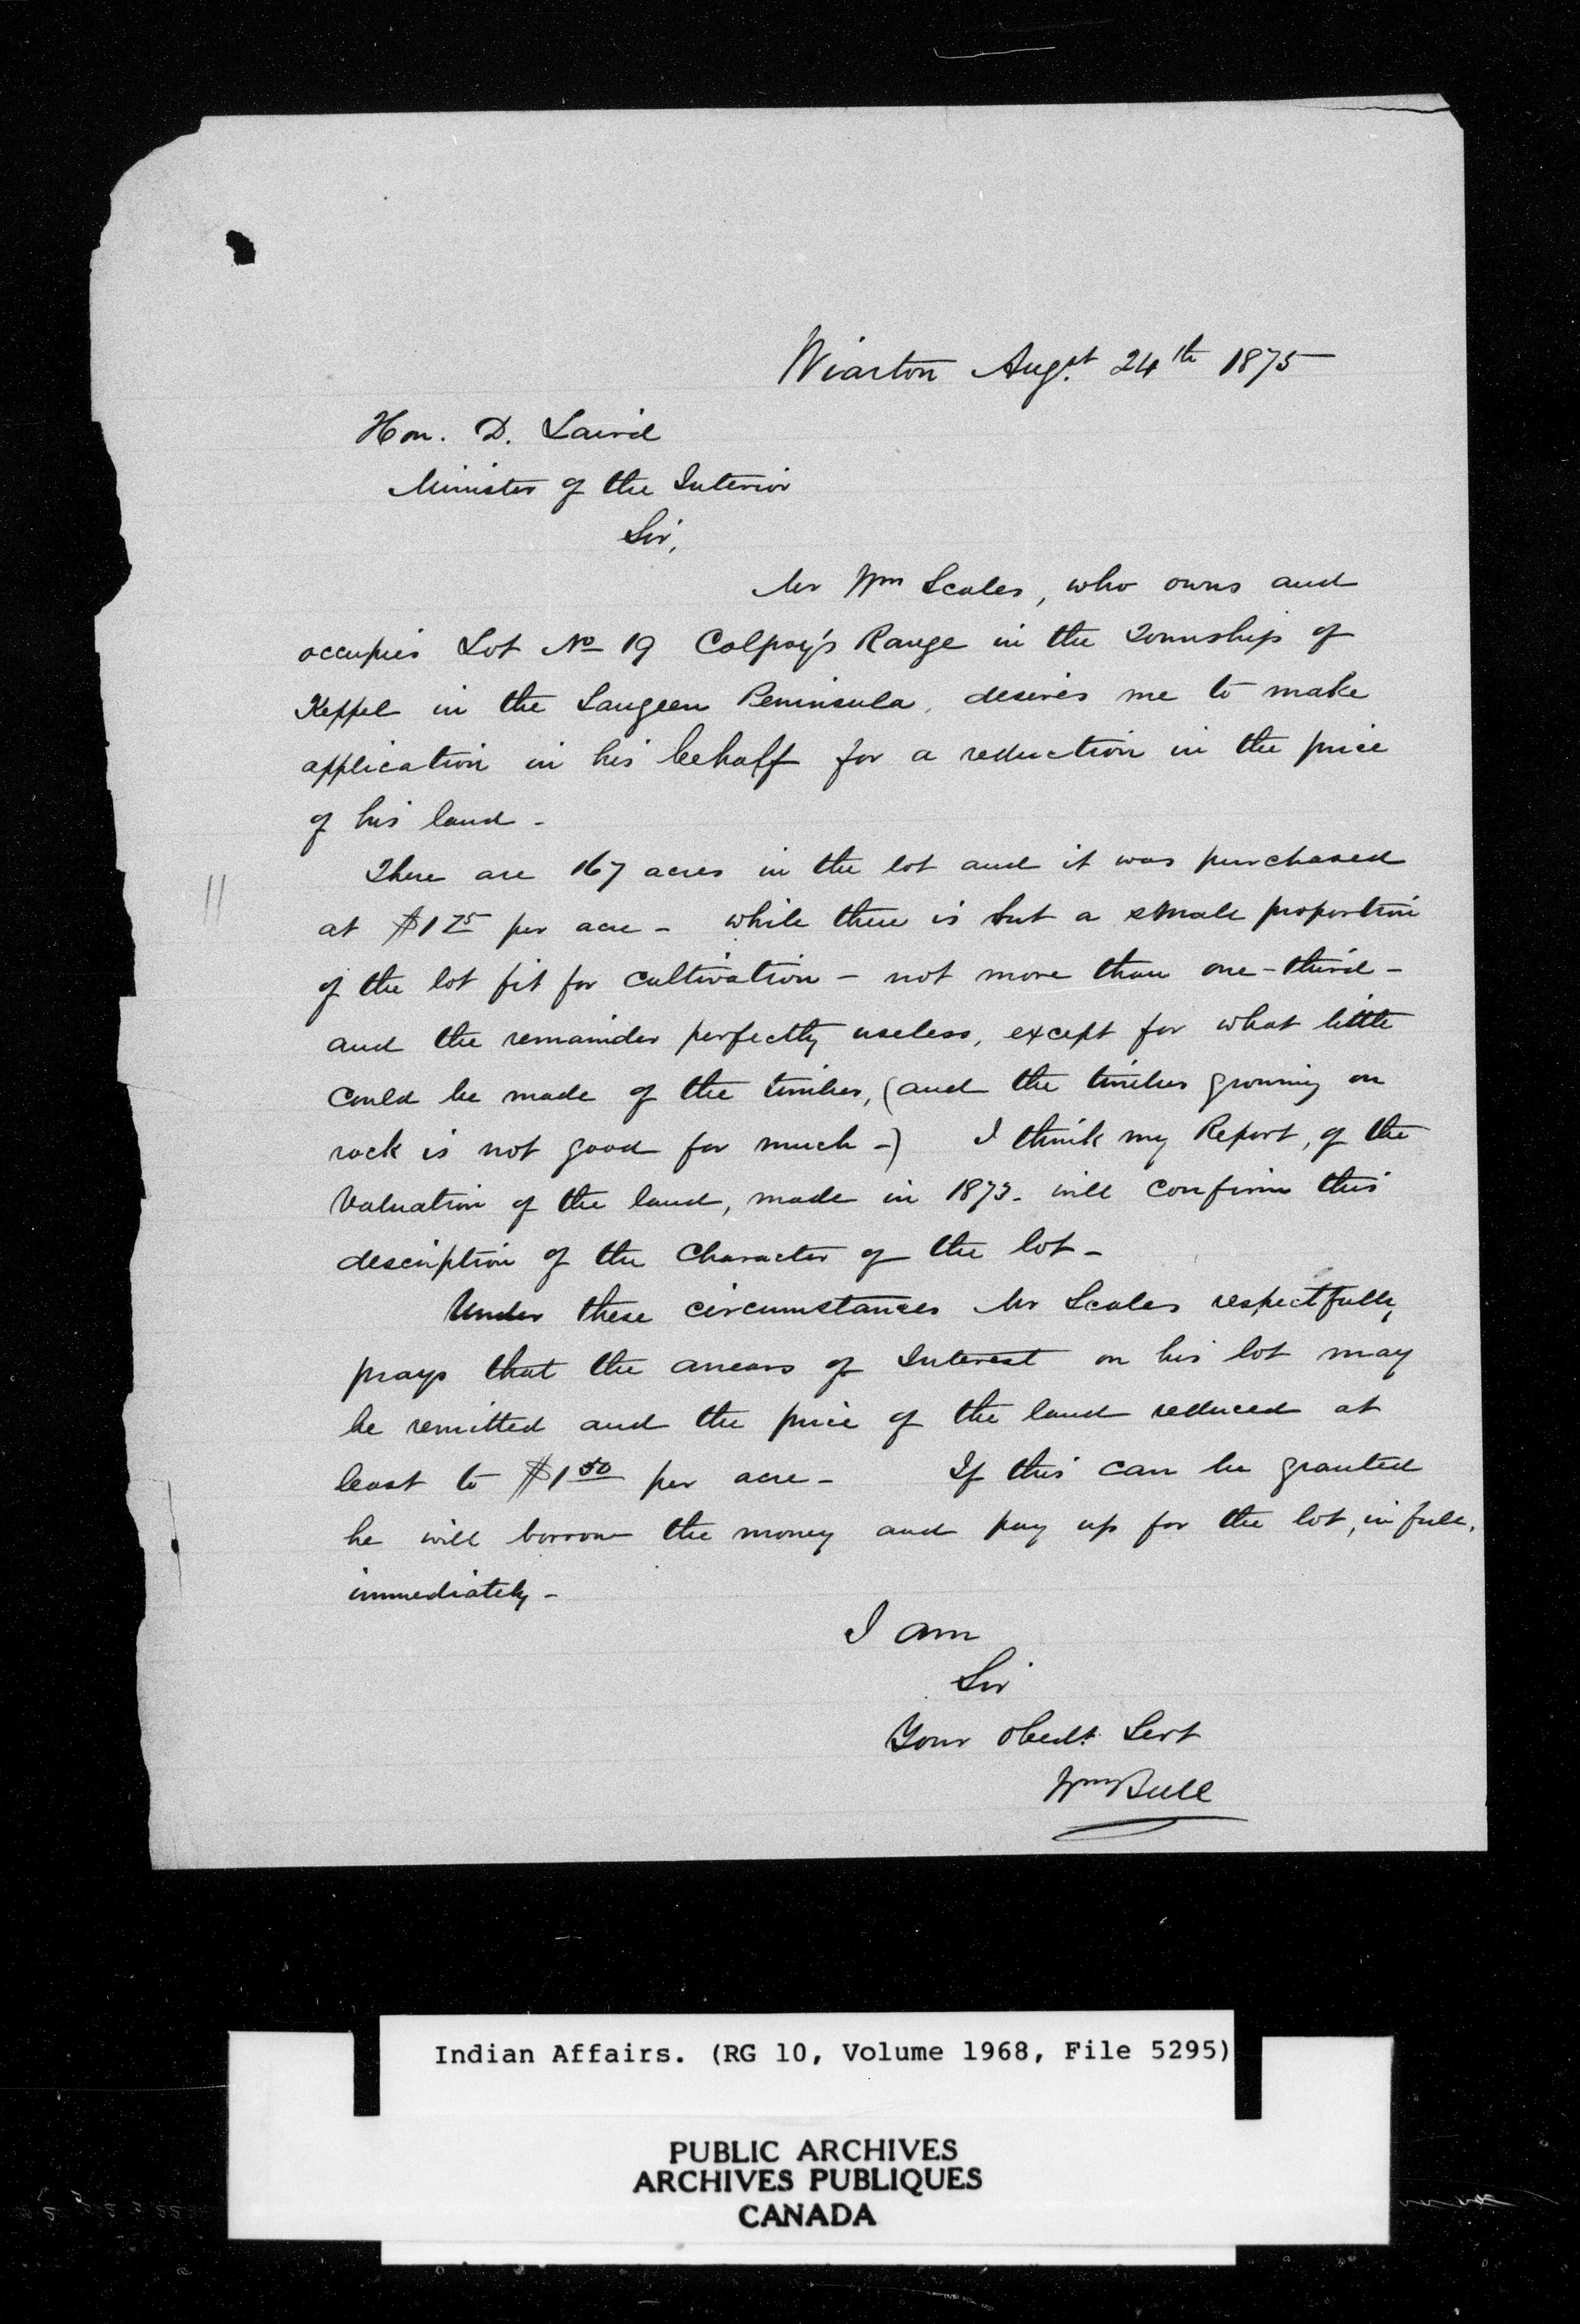 Wiarton Augst. 24th 1875
Hon. D. Laird
Minister of the Interior
Sir,
Mr Wm Scales, who owns and
occupies Lot No 19 Colpoy's Range in the Township of
Keppel in the Saugeen Peninsula, desires me to make
application in his behalf for a reduction in the price
of his land -
There are 167 acres in the lot and it was purchased
at $1 75 per acre - while there is but a small proportion
of the lot fit for cultivation - not more than one-third -
and the remainder perfectly useless, except for what little
could be made of the timber, (and the timber growing on
rock is not good for much -) I think my Report, of the
Valuation of the land, made in 1873 - will confirm this
description of the Character of the lot -
Under these circumstances Mr Scales respectfully
prays that the arrears of Interest on his lot may
be remitted and the price of the land reduced at
least to $1 50 per acre - If this can be granted
he will borrow the money and pay up for the lot, in full,
immediately -
I am
Sir
Your obedt. Servt
Wm Bull
Indian Affairs. (RG 10, Volume 1968, File 5295)
PUBLIC ARCHIVES
ARCHIVES PUBLIQUES
CANADA